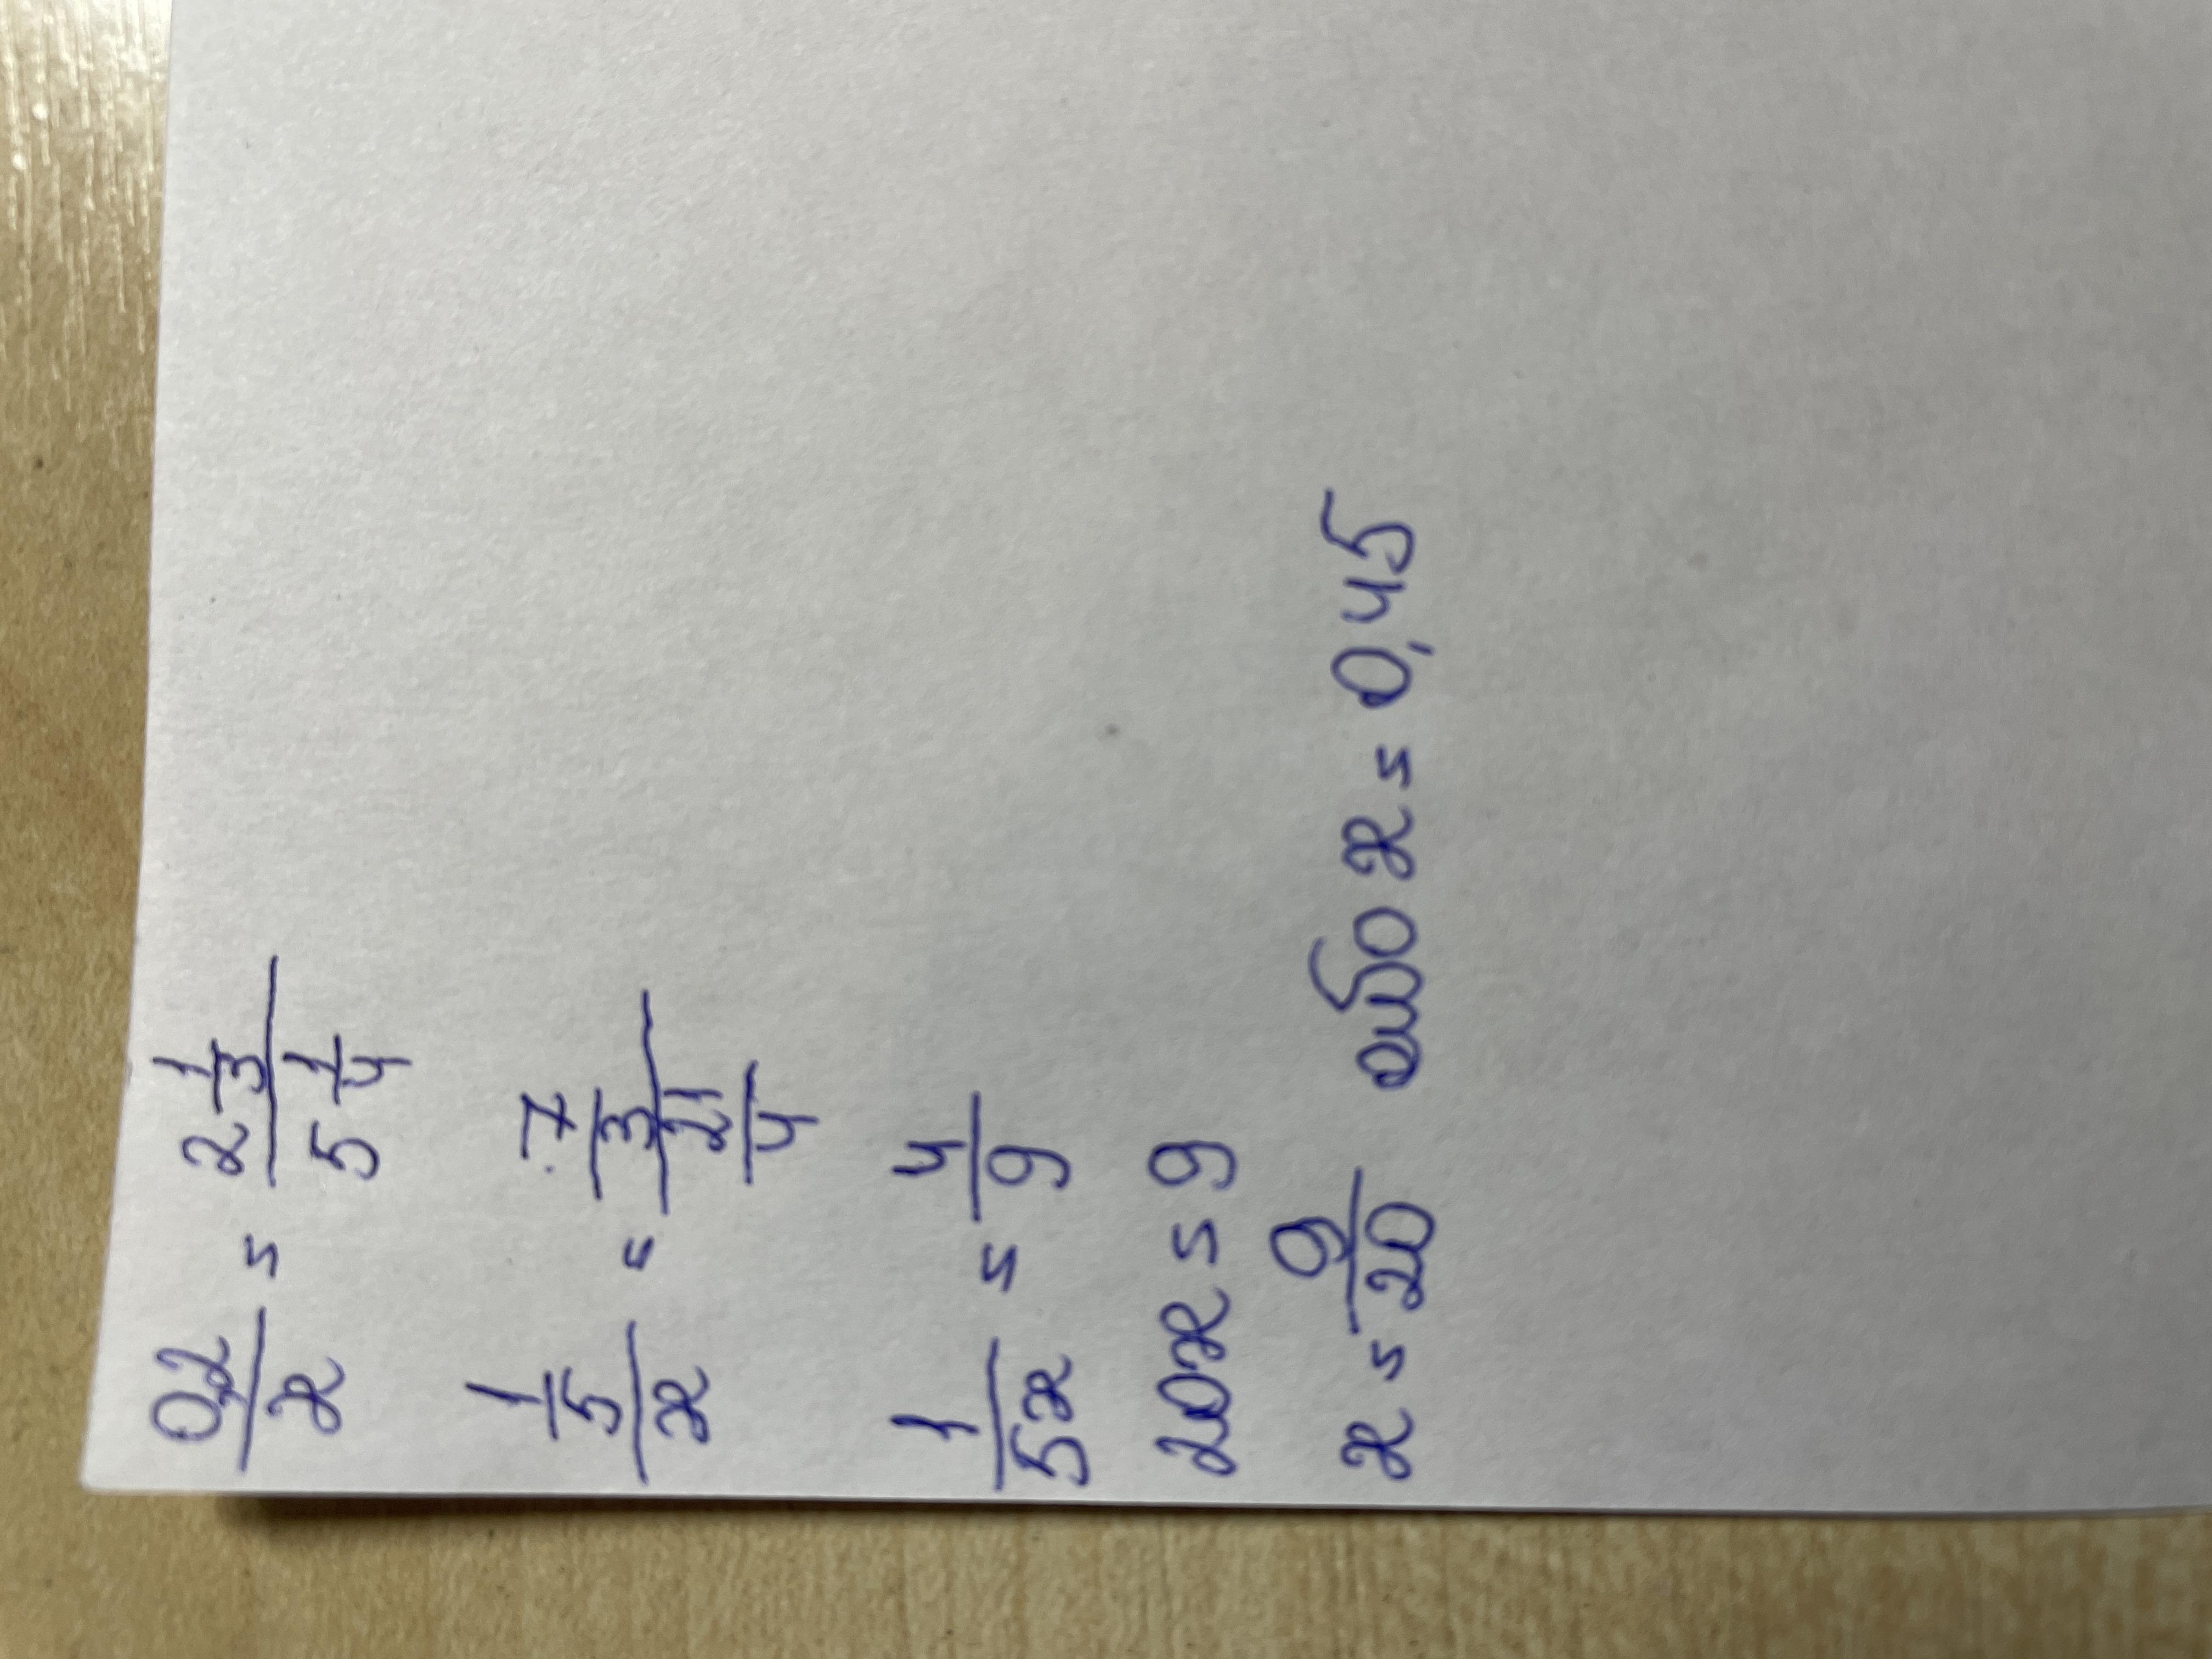 0,2/x = 2 1/3 / 5 1/4
1/5 / x = 7/3 / 21/4
1/5x = 4/9
20x = 9
x = 9/20 или x = 0,45